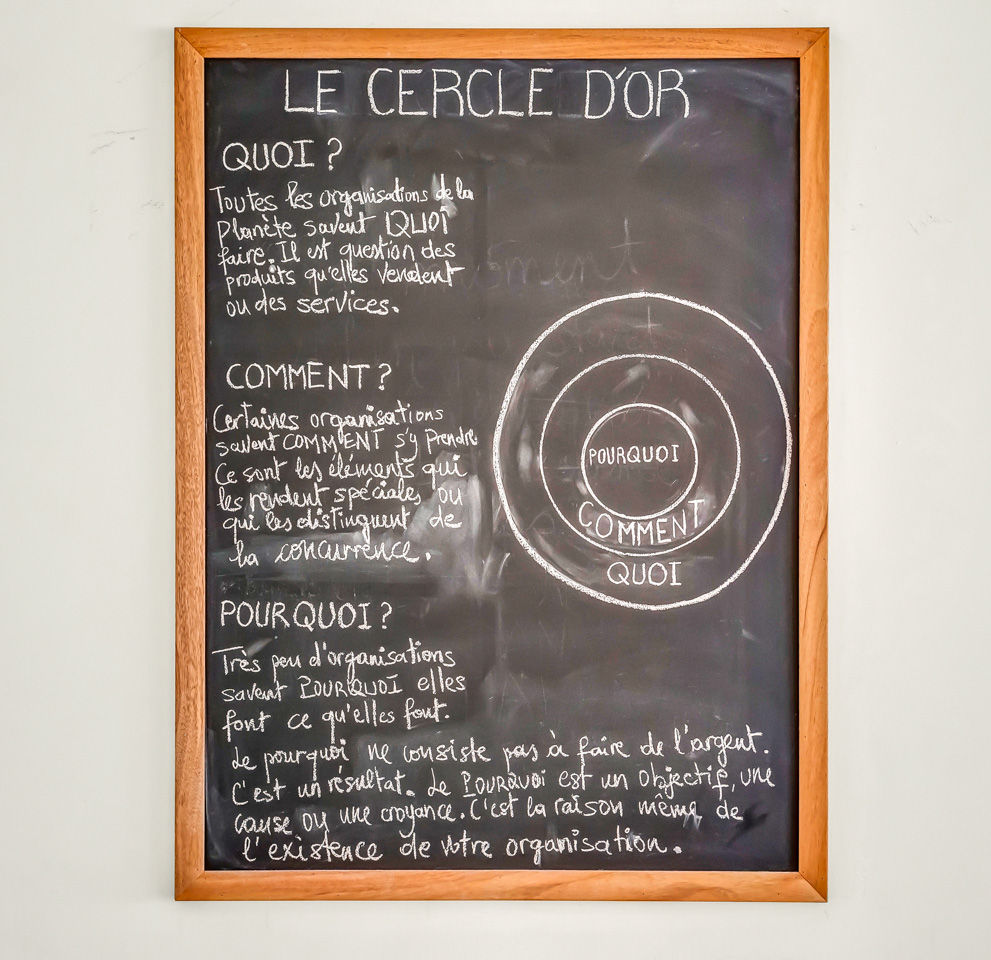 LE CERCLE D'OR
QUOI ?
Toutes les organisations de la
planète savent QUOI
faire. Il est question des
produits qu'elles vendent
ou des services.
COMMENT ?
Certaines organisations
savent COMMENT s'y prendre
Ce sont les éléments qui
les rendent spéciales ou
qui les distinguent de
la concurrence.
POURQUOI
COMMENT
QUOI
POURQUOI ?
Très peu d'organisations
savent POURQUOI elles
font ce qu'elles font.
Le pourquoi ne consiste pas à faire de l'argent.
C'est un résultat. Le POURQUOI est un objectif, une
cause ou une croyance. C'est la raison même de
l'existence de votre organisation.